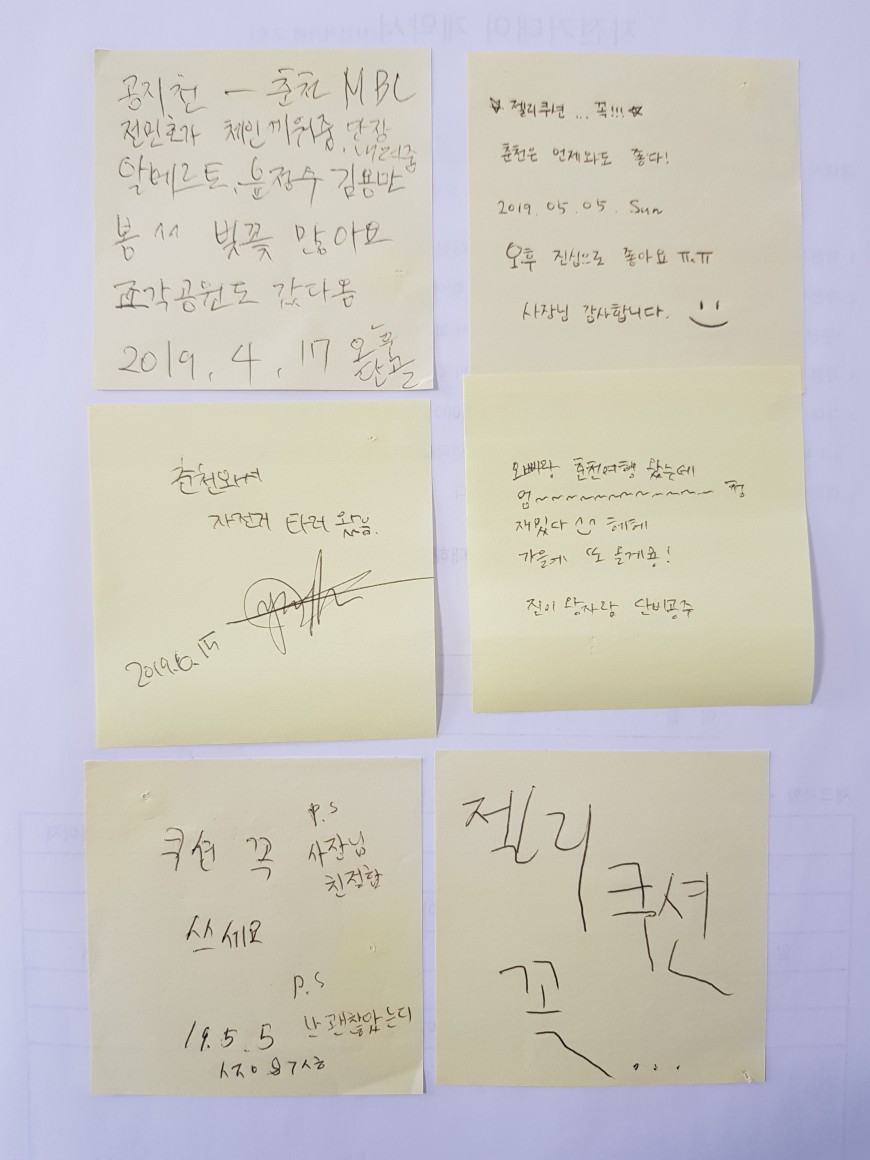 공지천 — 춘천 MBC
전민호가 체인끼워줌, 단장
내려줌
알베르트, 윤정수 김용만
봄 벚꽃 많아요
조각공원도 갔다옴
2019. 4. 17 오후
☆ 젤리쿠션 ... 꼭!!! ☆
춘천은 언제와도 좋다!
2019. 05. 05. Sun
오후 진심으로 좋아요 ㅠ.ㅠ
사장님 감사합니다.
춘천와서
자전거 타러 왔음.
2019.
오빠랑 춘천여행 왔는데
엄~~~~~~~~~~~~~~ 청
재밌다 ^^ 헤헤
가을에 또 올게용!
진이 왕자랑 단비공주
쿠션 꼭
쓰세요
19. 5. 5
P.S
사장님
친절함
P.S
난 괜찮았는디
젤리
쿠션
꼭
...